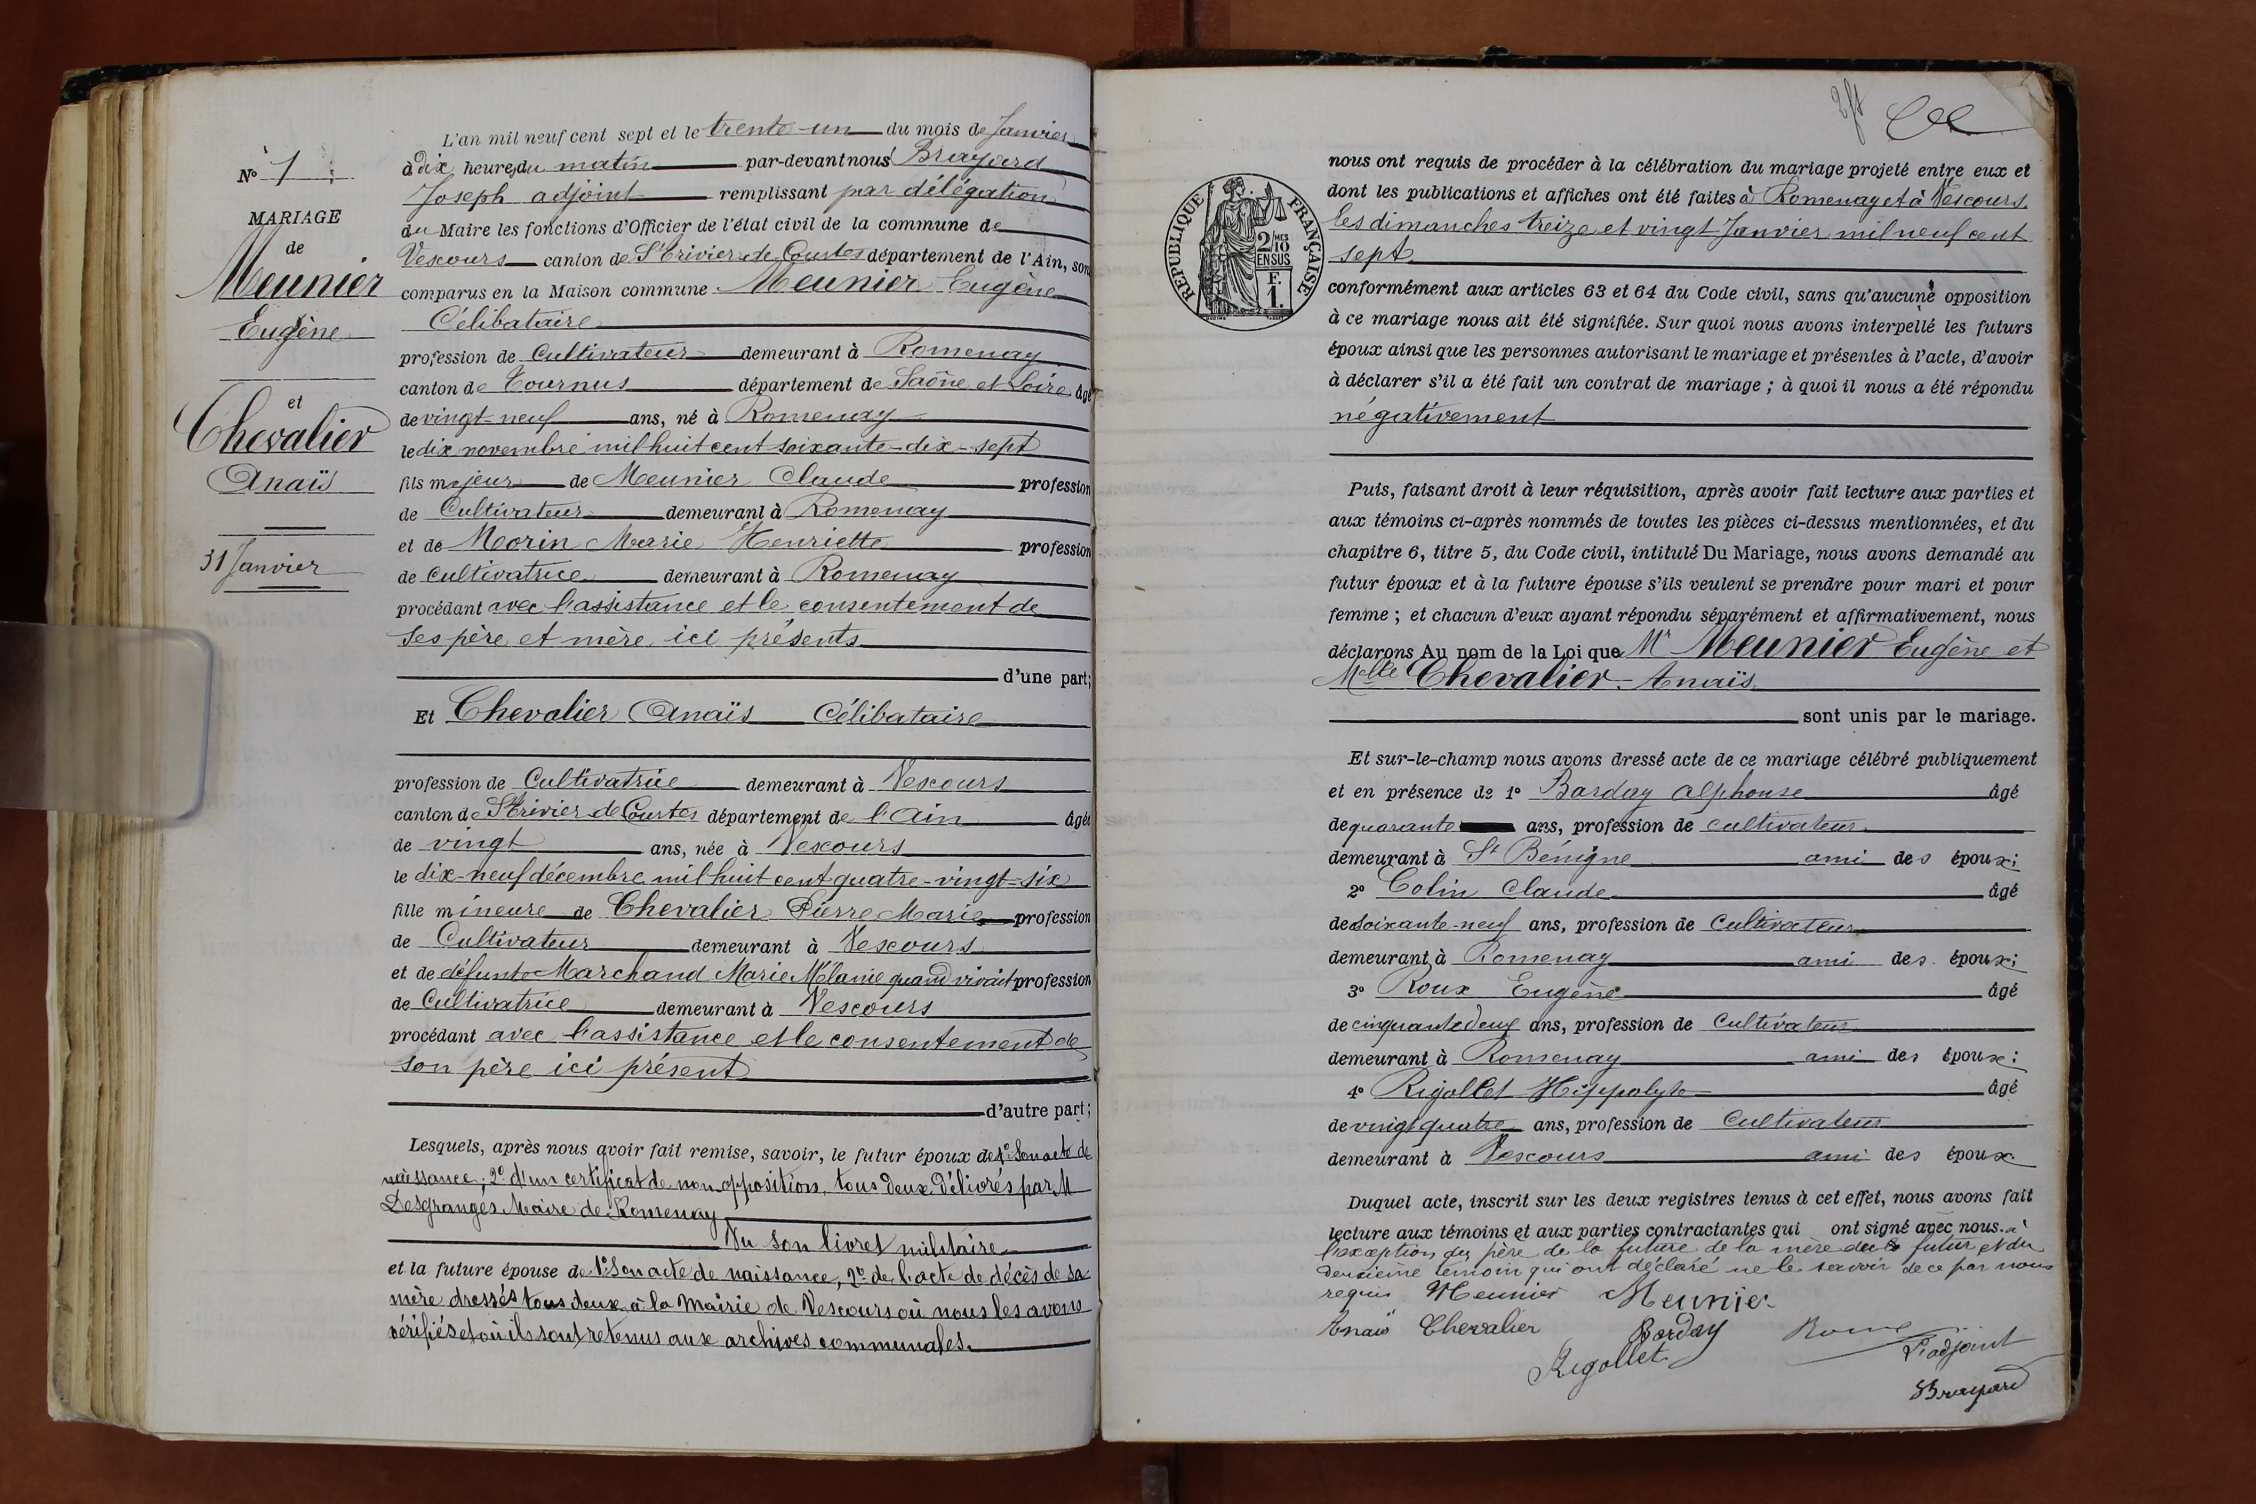 N° 1
MARIAGE
de
Meunier
Eugène
et
Chevalier
Anaïs
31 Janvier
L'an mil neuf cent sept et le trente-un du mois de Janvier
à dix heures du matin par-devant nous Brayard
Joseph adjoint remplissant par délégation
du Maire les fonctions d'Officier de l'état civil de la commune de
Vescours canton de St Trivier de Courtes département de l'Ain, sont
comparus en la Maison commune Meunier Eugène
Célibataire
profession de Cultivateur demeurant à Romenay
canton de Tournus département de Saône et Loire âgé
de vingt-neuf ans, né à Romenay
le dix novembre mil huit cent soixante-dix-sept
fils majeur de Meunier Claude profession
de Cultivateur demeurant à Romenay
et de Morin Marie Henriette profession
de cultivatrice demeurant à Romenay
procédant avec l'assistance et le consentement de
ses père et mère ici présents
d'une part;
Et Chevalier Anaïs Célibataire
profession de Cultivatrice demeurant à Vescours
canton de St Trivier de Courtes département de l'Ain âgée
de vingt ans, née à Vescours
le dix-neuf décembre mil huit cent quatre-vingt-six
fille mineure de Chevalier Pierre Marie profession
de Cultivateur demeurant à Vescours
et de défunte Marchand Marie Mélanie quand vivait profession
de Cultivatrice demeurant à Vescours
procédant avec l'assistance et le consentement de
son père ici présent
d'autre part;
Lesquels, après nous avoir fait remise, savoir, le futur époux de 1° Son acte de
naissance; 2° d'un certificat de non opposition, tous deux délivrés par M
Desgranges Maire de Romenay
Vu son livret militaire
et la future épouse de 1° Son acte de naissance, 2° de l'acte de décès de sa
mère dressés tous deux à la Mairie de Vescours où nous les avons
vérifiés et où ils sont retenus aux archives communales.
RÉPUBLIQUE FRANÇAISE
2/10
MES
EN SUS
F.
1.
nous ont requis de procéder à la célébration du mariage projeté entre eux et
dont les publications et affiches ont été faites à Romenay et à Vescours
les dimanches treize et vingt Janvier mil neuf cent
sept
conformément aux articles 63 et 64 du Code civil, sans qu'aucune opposition
à ce mariage nous ait été signifiée. Sur quoi nous avons interpellé les futurs
époux ainsi que les personnes autorisant le mariage et présentes à l'acte, d'avoir
à déclarer s'il a été fait un contrat de mariage ; à quoi il nous a été répondu
négativement
Puis, faisant droit à leur réquisition, après avoir fait lecture aux parties et
aux témoins ci-après nommés de toutes les pièces ci-dessus mentionnées, et du
chapitre 6, titre 5, du Code civil, intitulé Du Mariage, nous avons demandé au
futur époux et à la future épouse s'ils veulent se prendre pour mari et pour
femme ; et chacun d'eux ayant répondu séparément et affirmativement, nous
déclarons Au nom de la Loi que Mr Meunier Eugène et
Melle Chevalier Anaïs
sont unis par le mariage.
Et sur-le-champ nous avons dressé acte de ce mariage célébré publiquement
et en présence de 1° Barday Alphonse âgé
de quarante ans, profession de cultivateur
demeurant à St Bénigne ami des époux;
2° Colin Claude âgé
de soixante-neuf ans, profession de Cultivateur
demeurant à Romenay ami des époux;
3° Roux Eugène âgé
de cinquante deux ans, profession de Cultivateur
demeurant à Romenay ami des époux;
4° Rigollet Hippolyte âgé
de vingt quatre ans, profession de Cultivateur
demeurant à Vescours ami des époux
Duquel acte, inscrit sur les deux registres tenus à cet effet, nous avons fait
lecture aux témoins et aux parties contractantes qui ont signé avec nous à
l'exception du père de la future de la mère du futur et du
deuxième témoin qui ont déclaré ne le savoir de ce par nous
requis Meunier Meunier
Anaïs Chevalier Barday Roux
Rigollet L'adjoint
Brayard